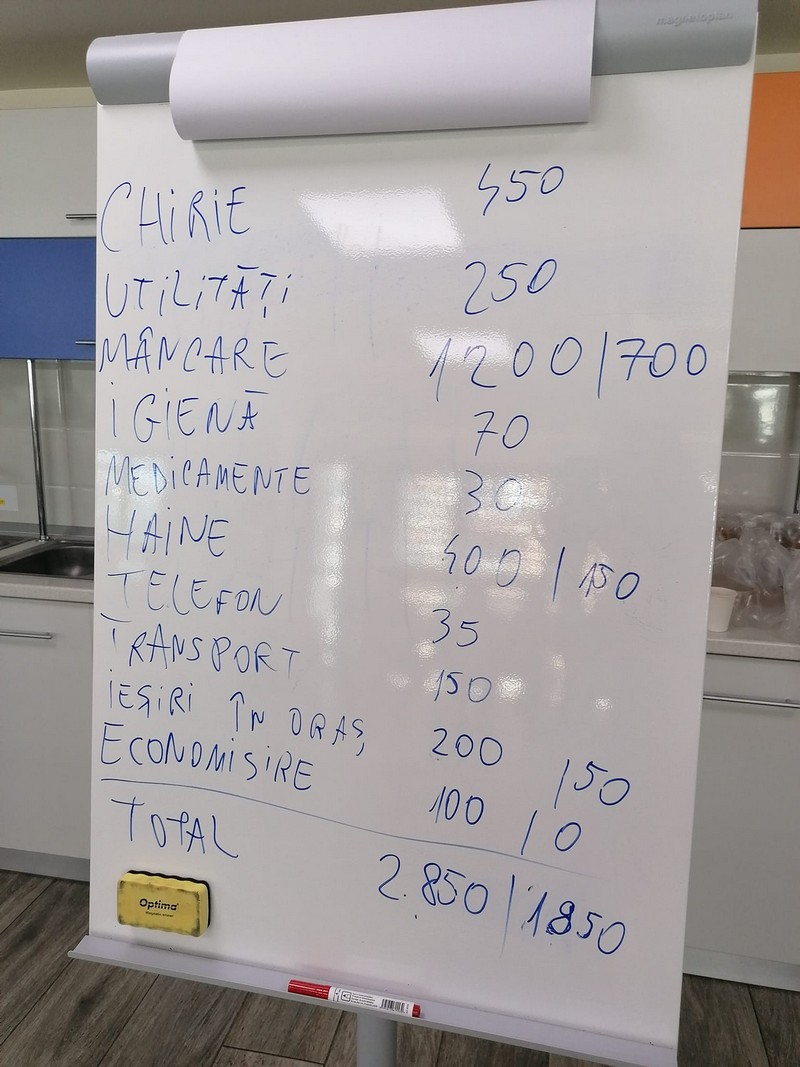 magnetoplan
CHIRIE 450
UTILITĂȚI 250
MÂNCARE 1200/700
IGIENĂ 70
MEDICAMENTE 30
HAINE 400/150
TELEFON 35
TRANSPORT 150
IEȘIRI ÎN ORAȘ 200/50
ECONOMISIRE 100/0
TOTAL 2.850/1850
Optima
Magnetic eraser